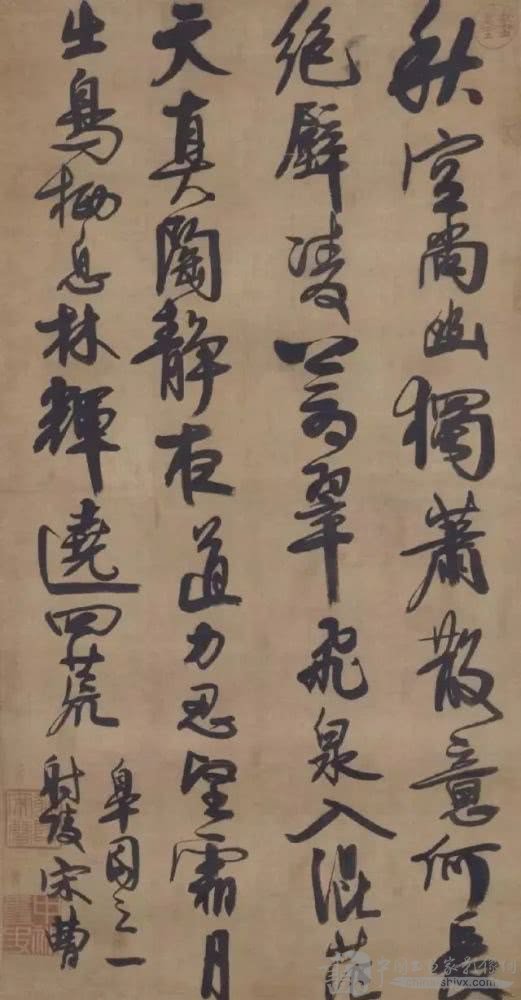 秋空尚幽獨蕭散意何長
絕壁凌蒼翠飛泉入混茫
天真陶靜夜道力忍霜月
出鳥栖息林輝遶四荒
皋園之一
射陵宋曹